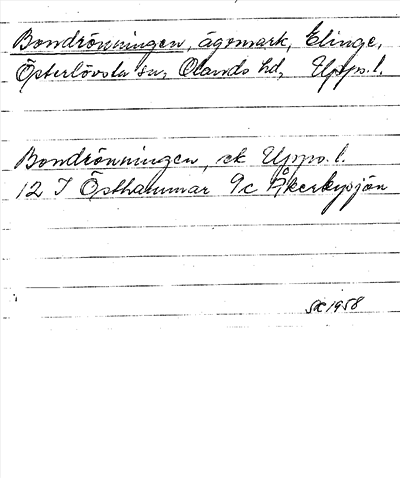 Bondrönningen, ägomark, Elinge,
Österlövsta sn, Olands hd, Upps. l.
Bondrönningen, ek Upps. l.
12 I Östhammar 9c Åkerbysjön
1958